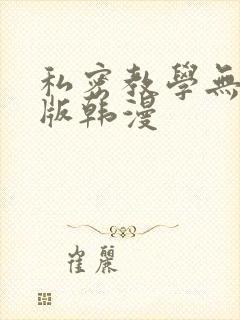 私密教學無
版韩漫
崔麗